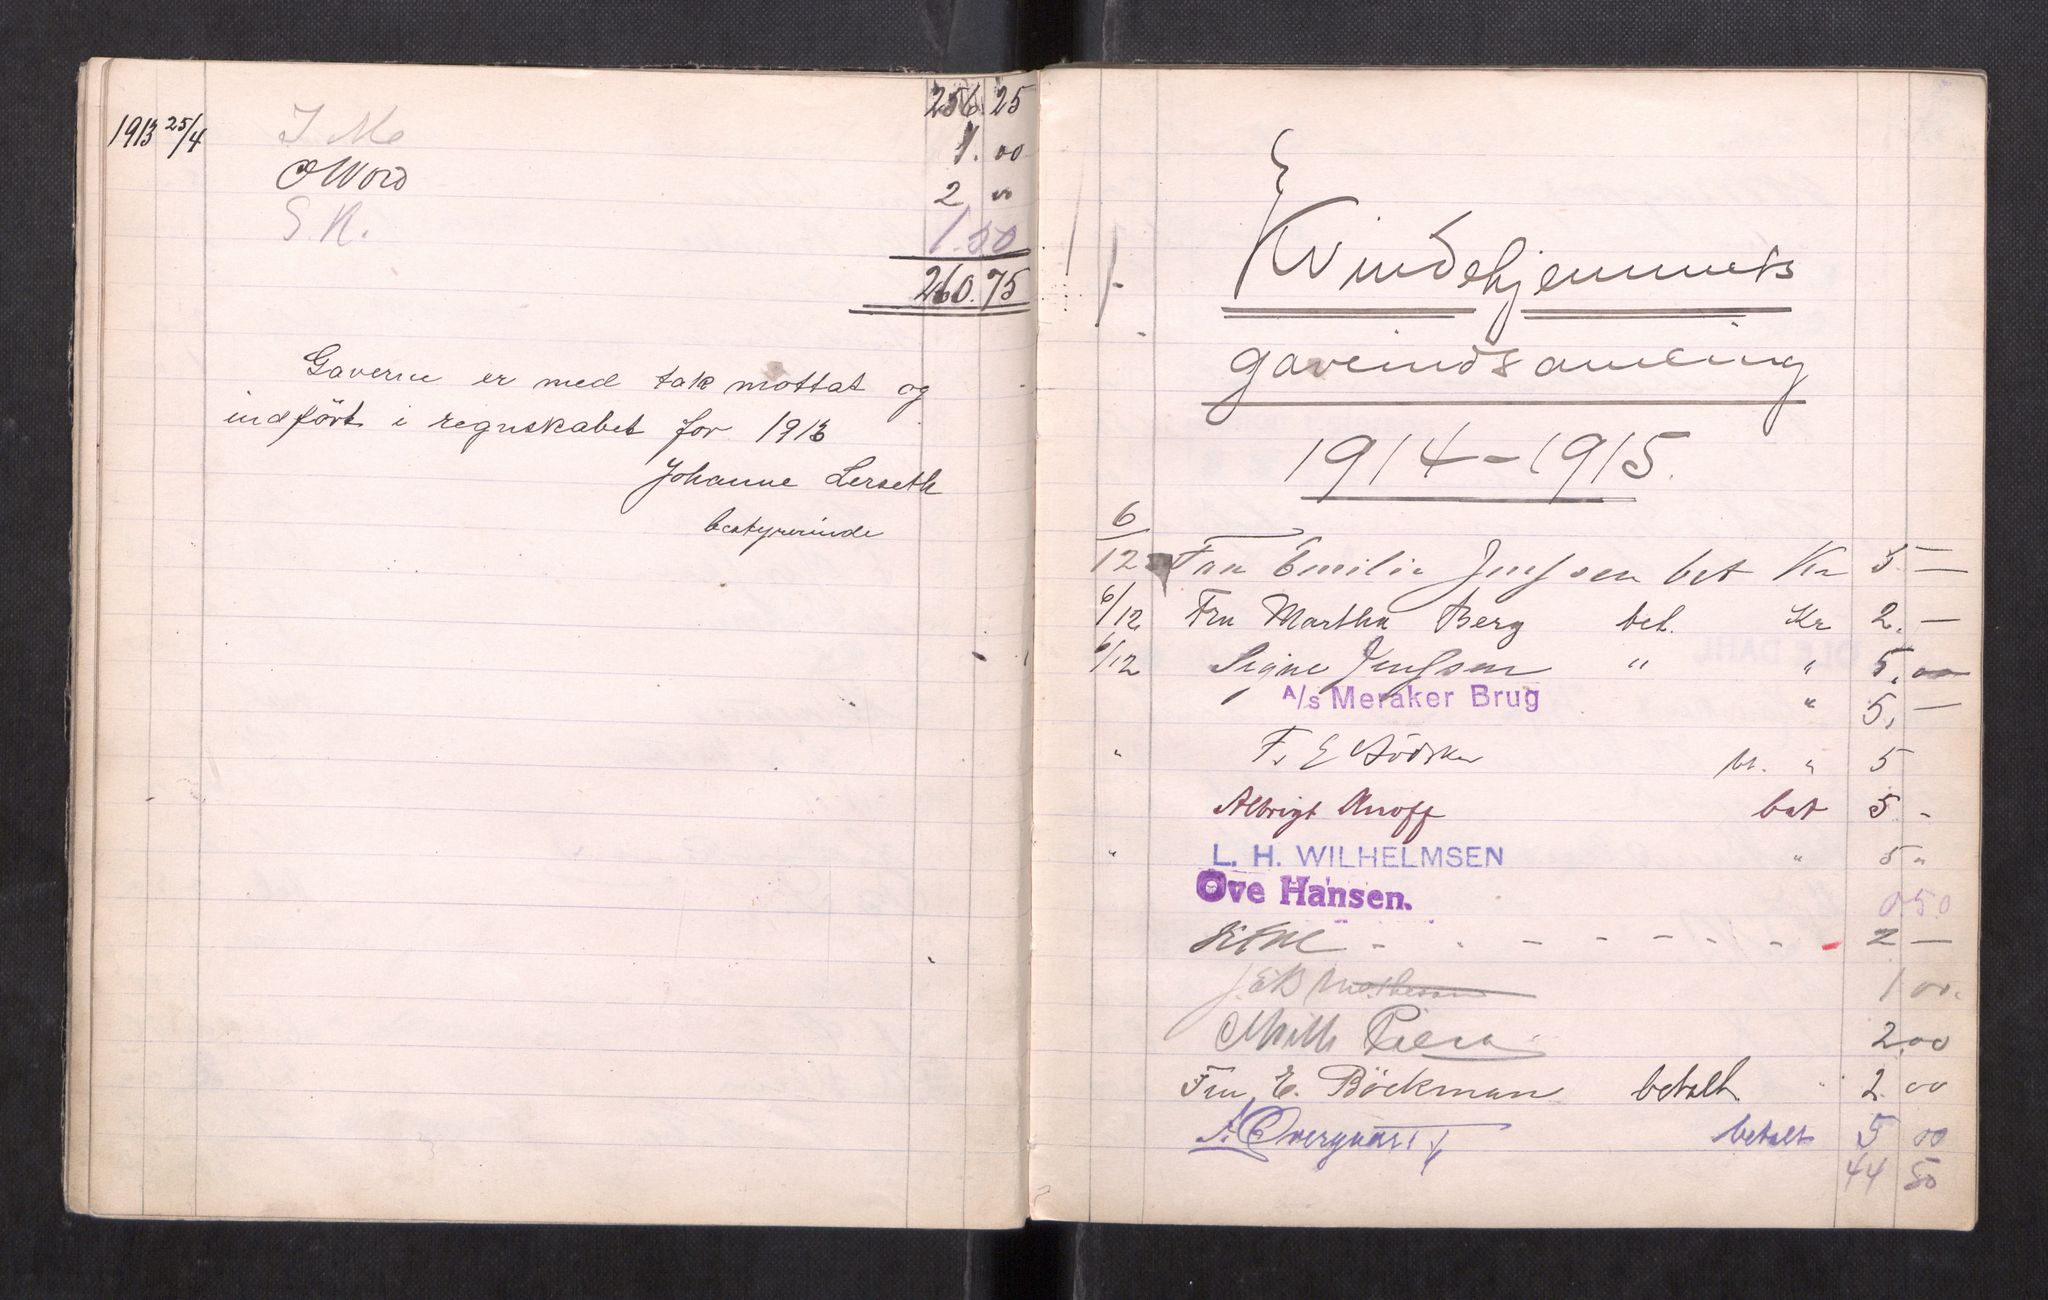 256.25
1913 25/4 J. M. 1.00
2 00
S. K. 1.50
260.75
Gaverne er med tak mottat og
indført i regnskabet for 1913
Johanne Lerseth
bestyrerinde
Kvindehjemmets
gaveindsamling
1914-1915.
6/12 Fru Emilie Jenssen bet Kr 5 —
6/12 Fru Martha Berg bet. Kr 2. —
6/12 Signe Jenssen " " 5.00
A/s Meraker Brug " 5. —
" F. E. bt. " 5
Albrigt Knoff bet 5 -
" L. H. WILHELMSEN " 5 "
Ove Hansen. 0 50
2 —
1 00.
2.00
Fru E. Böckman betalt " 2.00
betalt 5 00
44 50